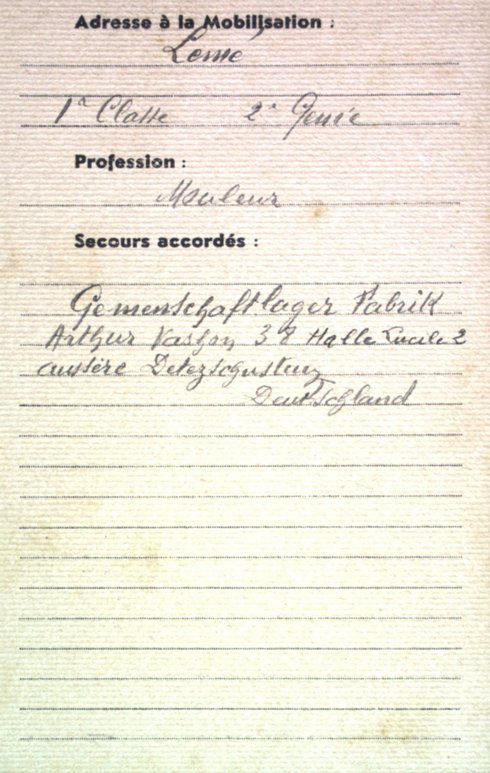 Adresse à la Mobilisation :
Lomé
1e Classe 2e Génie
Profession :
Mouleur
Secours accordés :
Gemenschaftlager Fabrik
Arthur 38 Halle Saale 2
aussere
Deutschland